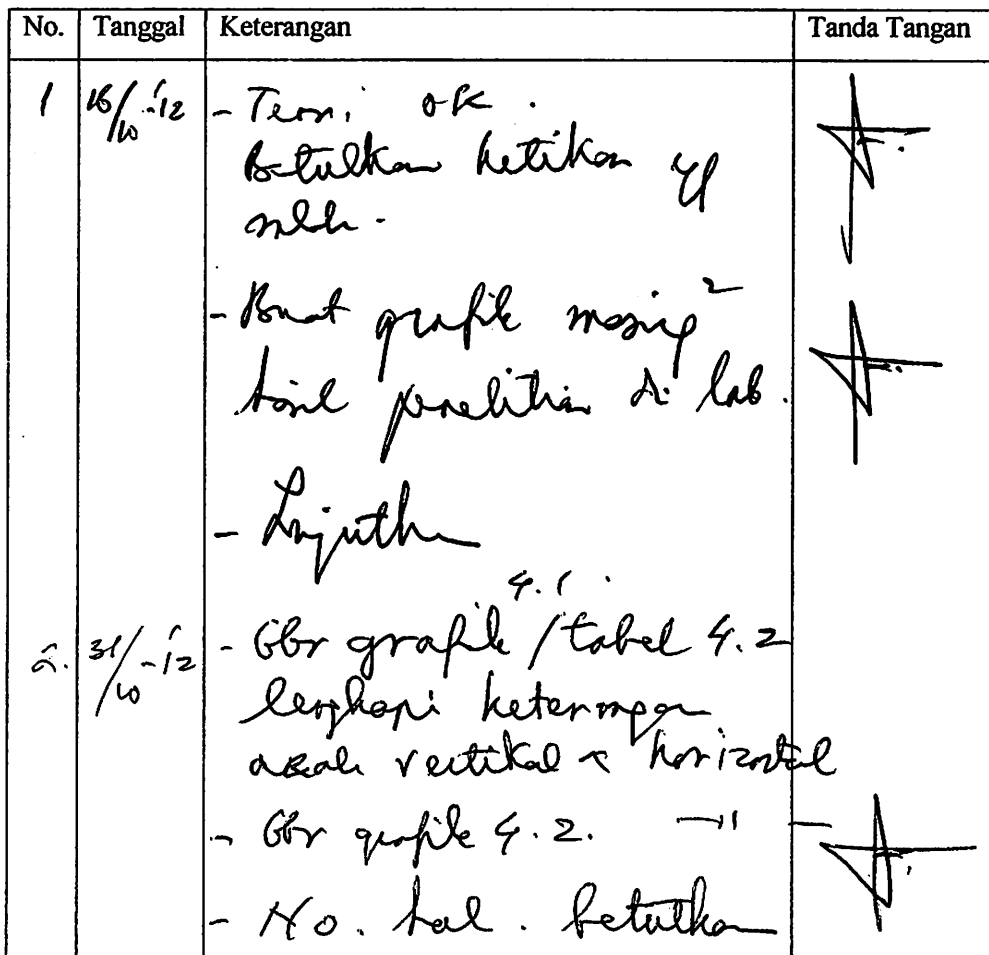 No. Tanggal Keterangan Tanda Tangan
1 18/10-'12 - Teori ok.
Betulkan ketikan yg
salah.
- Buat grafik masing2
hasil penelitian di lab.
- Lanjutkan
4.1
2. 31/10-'12 - Gbr grafik / tabel 4.2
lengkapi keterangan
arah vertikal & horizontal
- Gbr grafik 4.2. —"—
- No. hal. betulkan